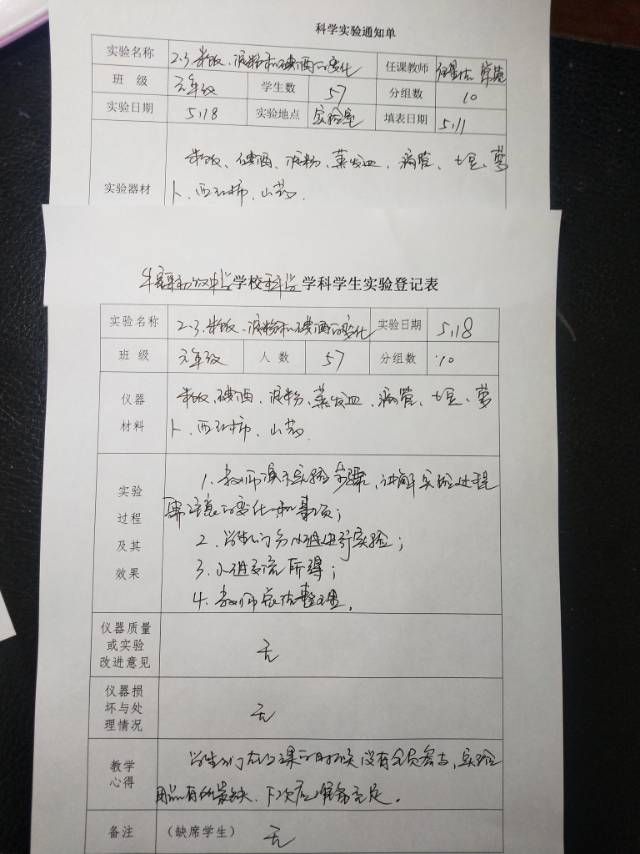 科学实验通知单
实验名称 2.3 米饭、淀粉和碘酒的变化 任课教师
班 级 六年级 学生数 57 分组数 10
实验日期 5.18 实验地点 实验室 填表日期 5.11
实验器材 米饭、碘酒、淀粉、蒸发皿、滴管、土豆、萝
卜、西红柿、山药.
学校科学学科学生实验登记表
实验名称 2.3.米饭、淀粉和碘酒的变化 实验日期 5.18
班 级 六年级 人 数 57 分组数 10
仪器材料 米饭、碘酒、淀粉、蒸发皿、滴管、土豆、萝
卜、西红柿、山药.
实验过程及其效果 1.教师演示实验步骤,讲解实验过程
需注意的变化和事项;
2.学生们分小组进行实验;
3.小组交流所得;
4.教师总体整理.
仪器质量或实验改进意见 无
仪器损坏与处理情况 无
教学心得 学生们在上课的时候没有全员参与,实验
用品有所欠缺、下次应准备充足.
备注 (缺席学生) 无